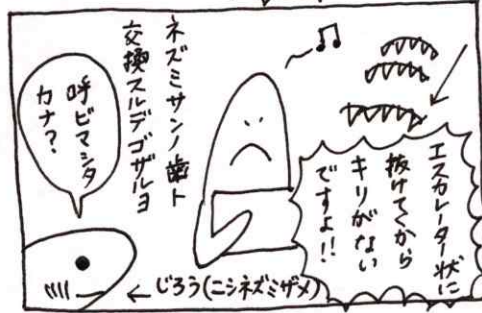 エスカレーター状に
抜けてくから
キリがない
ですよ!!
♫
ネズミサンノ歯ト
交換スルデゴザルヨ
呼ビマシタ
カナ?
←じろう(ニシネズミザメ)